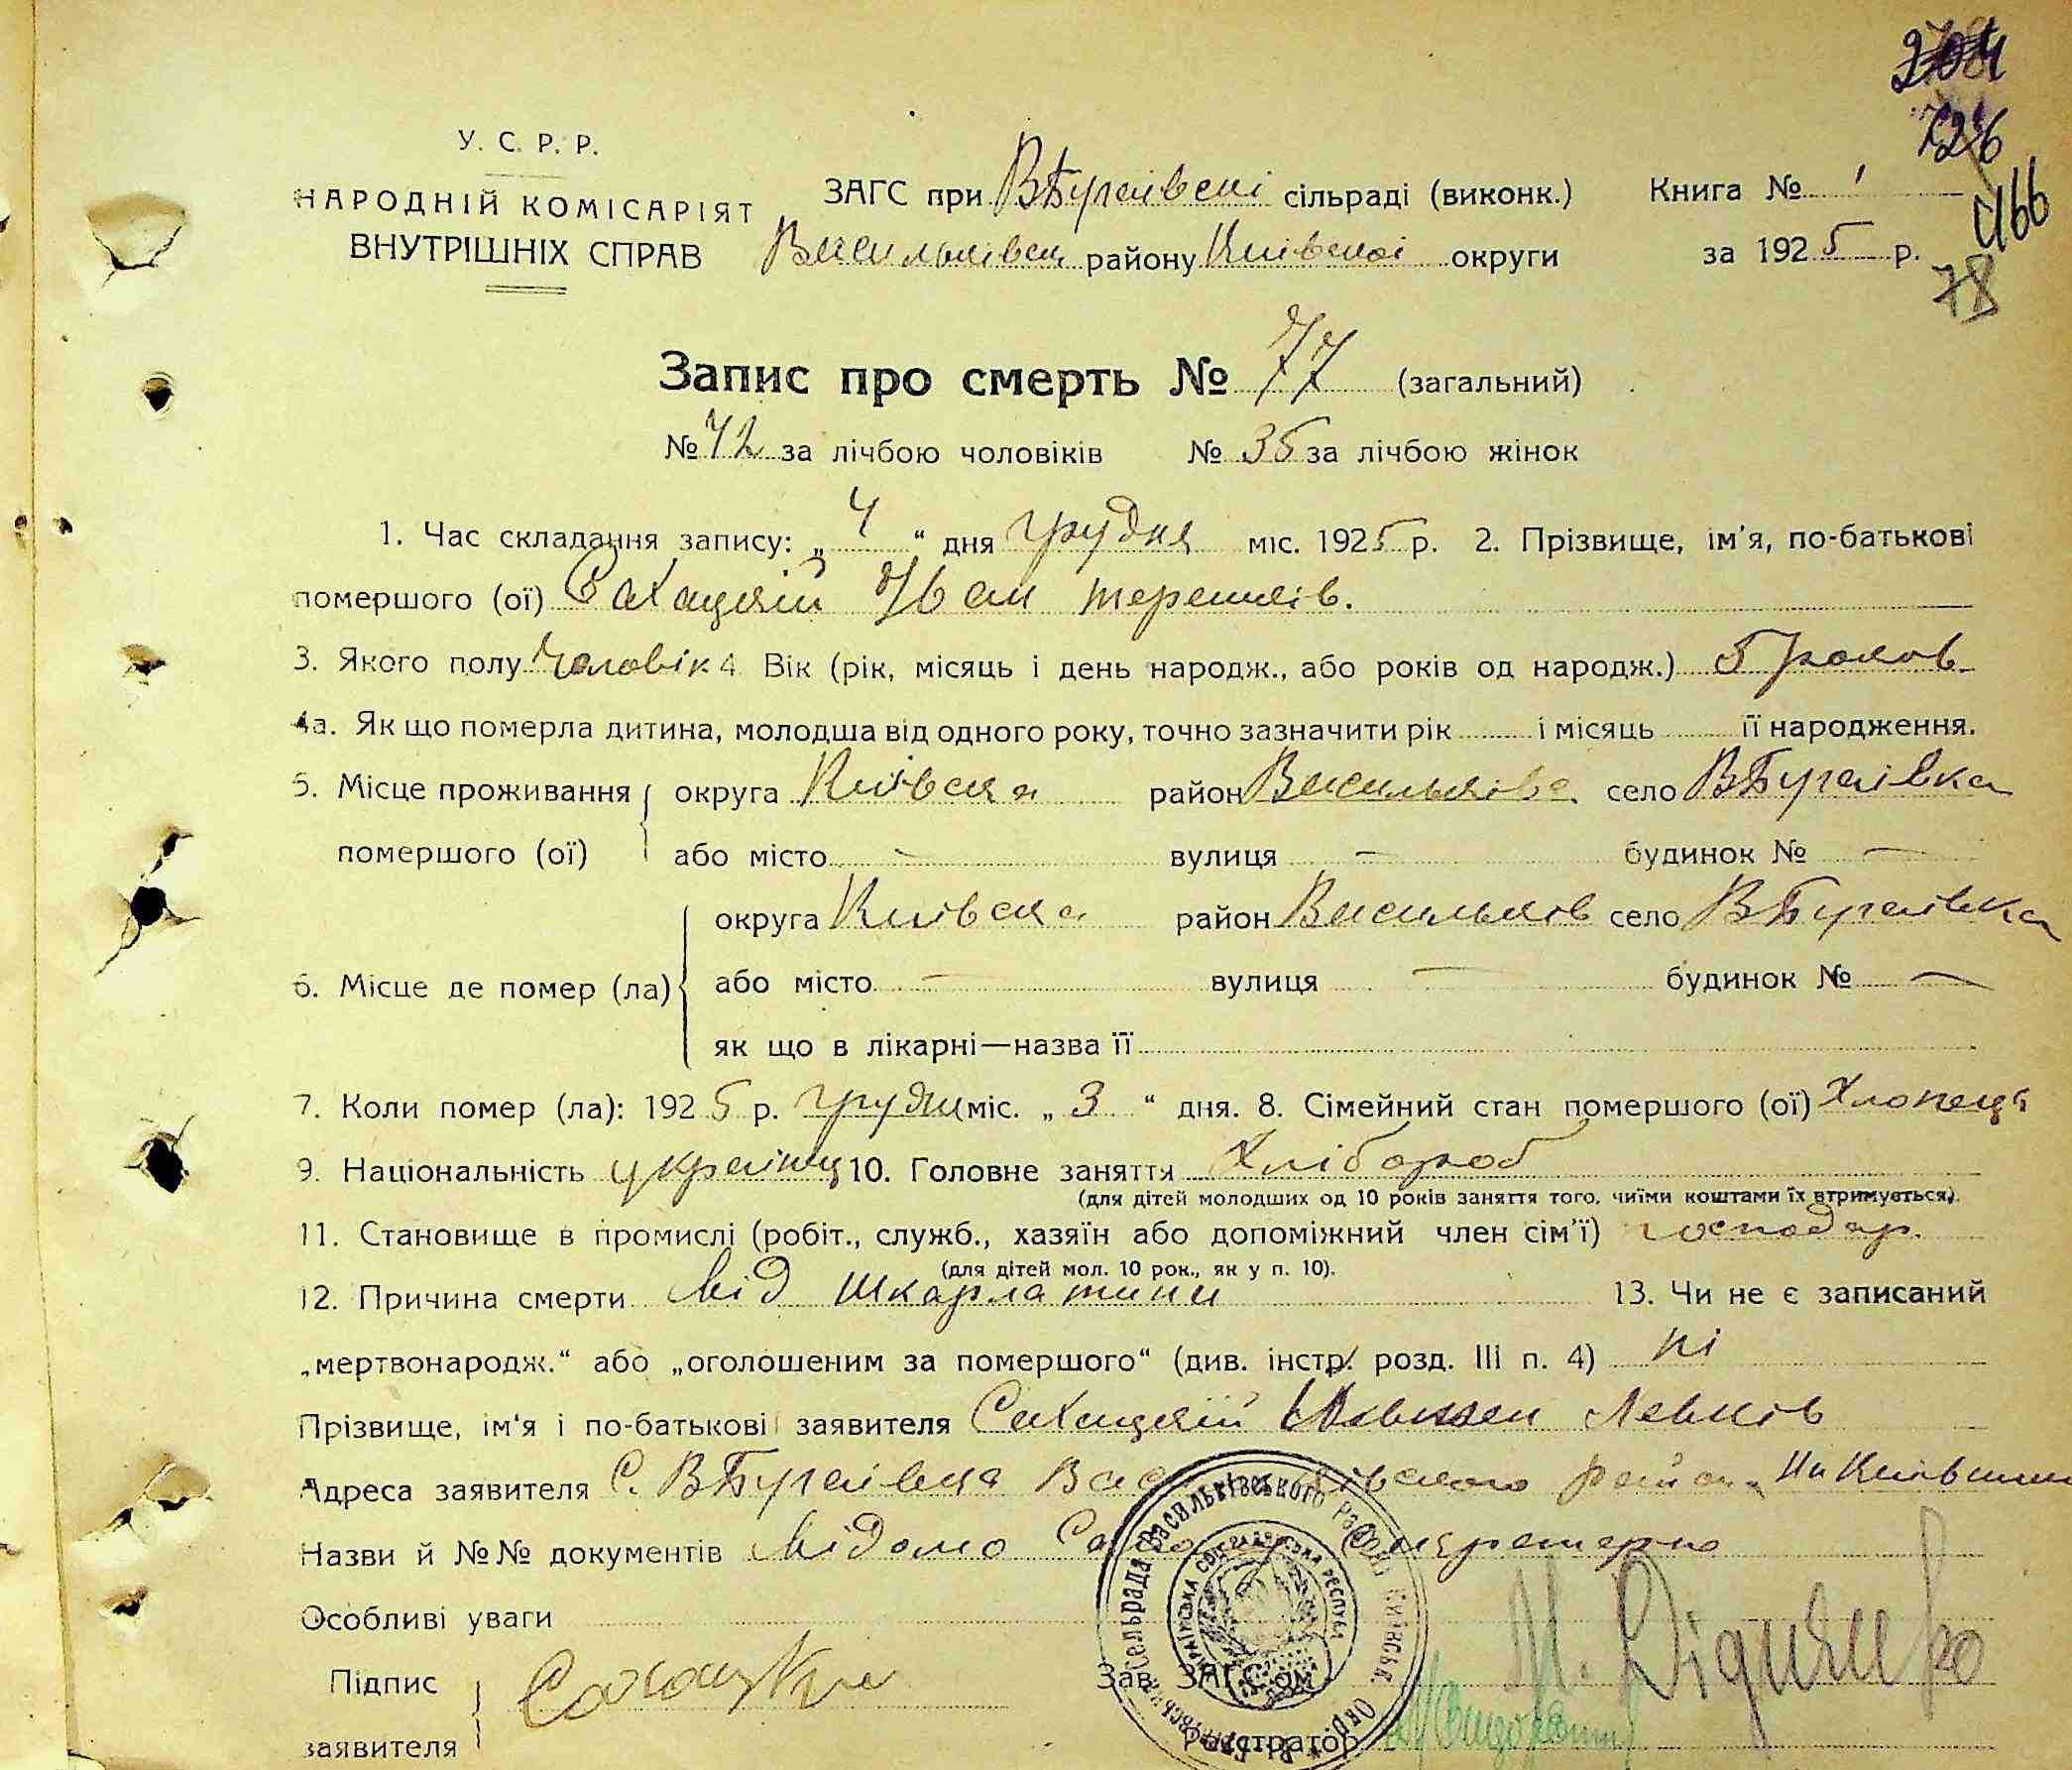 204
126
466
78
У. С. Р. Р.
НАРОДНІЙ КОМІСАРІЯТ
ВНУТРІШНІХ СПРАВ
ЗАГС при ВБугаївскі сільраді (виконк.) Книга № 1
Васильківск району Київскої округи за 1925 р.
Запис про смерть № 77 (загальний)
№ 42 за лічбою чоловіків № 35 за лічбою жінок
1. Час складання запису: „ 4 “ дня грудня міс. 1925 р. 2. Прізвище, ім'я, по-батькові
помершого (ої) Сахацкій Іван терешків.
3. Якого полу Чоловік 4. Вік (рік, місяць і день народж., або років од народж.) 5 Роков
4а. Як що померла дитина, молодша від одного року, точно зазначити рік і місяць її народження.
5. Місце проживання округа Київска район Васильків село ВБугаївка
помершого (ої) або місто — вулиця — будинок № —
округа Київска район Васильків село ВБугаївка
6. Місце де помер (ла) або місто — вулиця — будинок № —
як що в лікарні—назва її
7. Коли помер (ла): 1925 р. грудни міс. „ 3 “ дня. 8. Сімейний стан помершого (ої) Хлопець
9. Національність українц 10. Головне заняття Хлібороб
(для дітей молодших од 10 років заняття того, чиїми коштами їх втримується).
11. Становище в промислі (робіт., служб., хазяїн або допоміжний член сім'ї) господар.
(для дітей мол. 10 рок., як у п. 10).
12. Причина смерти від шкарлатини 13. Чи не є записаний
„мертвонародж.“ або „оголошеним за помершого“ (див. інстр. розд. III п. 4) ні
Прізвище, ім'я і по-батькові заявителя Сахацкій Левків
Адреса заявителя С. ВБугаївка ківского район На Київщині
Назви й №№ документів відомо Секретарю
Особливі уваги
Підпис
заявителя
Зав. ЗАГС'ом М. Дідиченко
Реєстратор